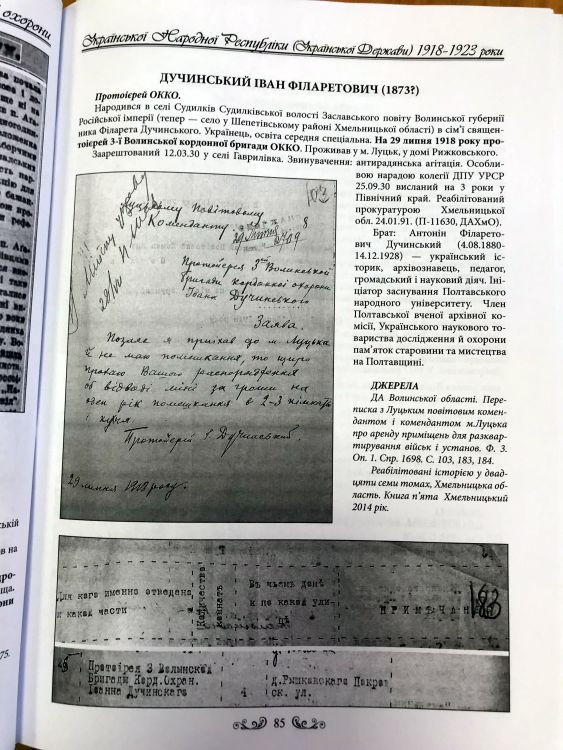 охорони
Української Народної Республіки (Української Держави) 1918-1923 роки
ДУЧИНСЬКИЙ ІВАН ФІЛАРЕТОВИЧ (1873?)
Протоієрей ОККО.
Народився в селі Судилків Судилківської волості Заславського повіту Волинської губернії
Російської імперії (тепер — село у Шепетівському районі Хмельницької області) в сім’ї священ-
ника Філарета Дучинського. Українець, освіта середня спеціальна. На 29 липня 1918 року про-
тоієрей 3-ї Волинської кордонної бригади ОККО. Проживав у м. Луцьк, у домі Рижковського.
Заарештований 12.03.30 у селі Гаврилівка. Звинувачення: антирадянська агітація. Особли-
вою нарадою колегії ДПУ УРСР
25.09.30 висланий на 3 роки у
Північний край. Реабілітований
прокуратурою Хмельницької
обл. 24.01.91. (П-11630, ДАХмО).
Брат: Антонін Філарето-
вич Дучинський (4.08.1880-
14.12.1928) — український іс-
торик, архівознавець, педагог,
громадський і науковий діяч. Іні-
ціатор заснування Полтавського
народного університету. Член
Полтавської вченої архівної ко-
місії, Українського наукового то-
вариства дослідження й охорони
пам’яток старовини та мистецтва
на Полтавщині.
ДЖЕРЕЛА
ДА Волинської області. Пере-
писка з Луцьким повітовим комен-
дантом і комендантом м.Луцька
про аренду приміщень для разквар-
тирування військ і установ. Ф. 3.
Оп. 1. Спр. 1698. С. 103, 183, 184.
Реабілітовані історією у двад-
цяти семи томах, Хмельницька об-
ласть. Книга п’ята Хмельницький
2014 рік.
103
Луцькому Повітовому
Коменданту.
Протоієрея 3ої Волинської
бригади кордонної охорони
Івана Дучинського
Заява.
Позаяк я приїхав до м. Луцька
й не маю помешкання, то щиро
прохаю Вашого распорядження
об відводі міні за гроши на
один рік помешкання в 2-3 кімнати
і кухня.
Протоієрій І. Дучинський.
29 липня 1918 року.
Для кого именно отведена
и какой части
Количество
комнат
Въ чьемъ домѣ
и по какой ули-
цѣ
ПРИМѢЧАН
183
Протоірея 3 Волынской
Бригады Корд.Охран.
Іоанна Дучинскаго
4.
д.Рышковскаго Покров
ск. ул.
85